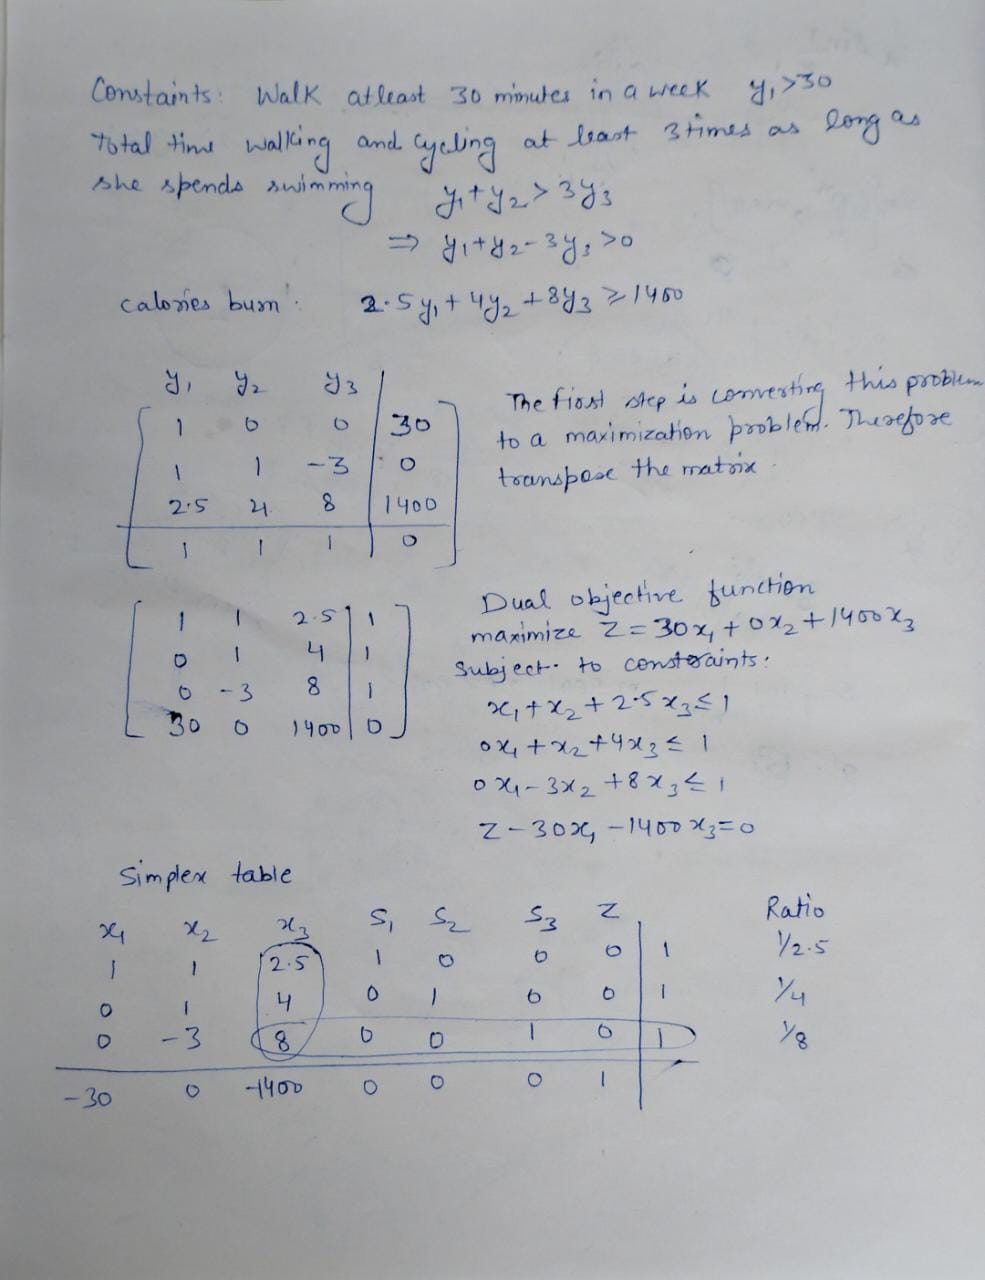 Constaints: Walk atleast 30 minutes in a week y₁>30
Total time walking and cycling at least 3 times as long as
she spends swimming y₁+y₂>3y₃
⇒ y₁+y₂-3y₃>0
calories burn: 2.5y₁+4y₂+8y₃≥1400
y₁ y₂ y₃
1 0 0 30
1 1 -3 0
2.5 4 8 1400
1 1 1 0
The first step is converting this problem
to a maximization problem. Therefore
transpose the matrix.
1 1 2.5 1
0 1 4 1
0 -3 8 1
30 0 1400 0
Dual objective function
maximize Z=30x₁+0x₂+1400x₃
Subject to constraints:
x₁+x₂+2.5x₃≤1
0x₁+x₂+4x₃≤1
0x₁-3x₂+8x₃≤1
Z-30x₁-1400x₃=0
Simplex table
x₁ x₂ x₃ S₁ S₂ S₃ Z Ratio
1 1 2.5 1 0 0 0 1 1/2.5
0 1 4 0 1 0 0 1 1/4
0 -3 8 0 0 1 0 1 1/8
-30 0 -1400 0 0 0 1